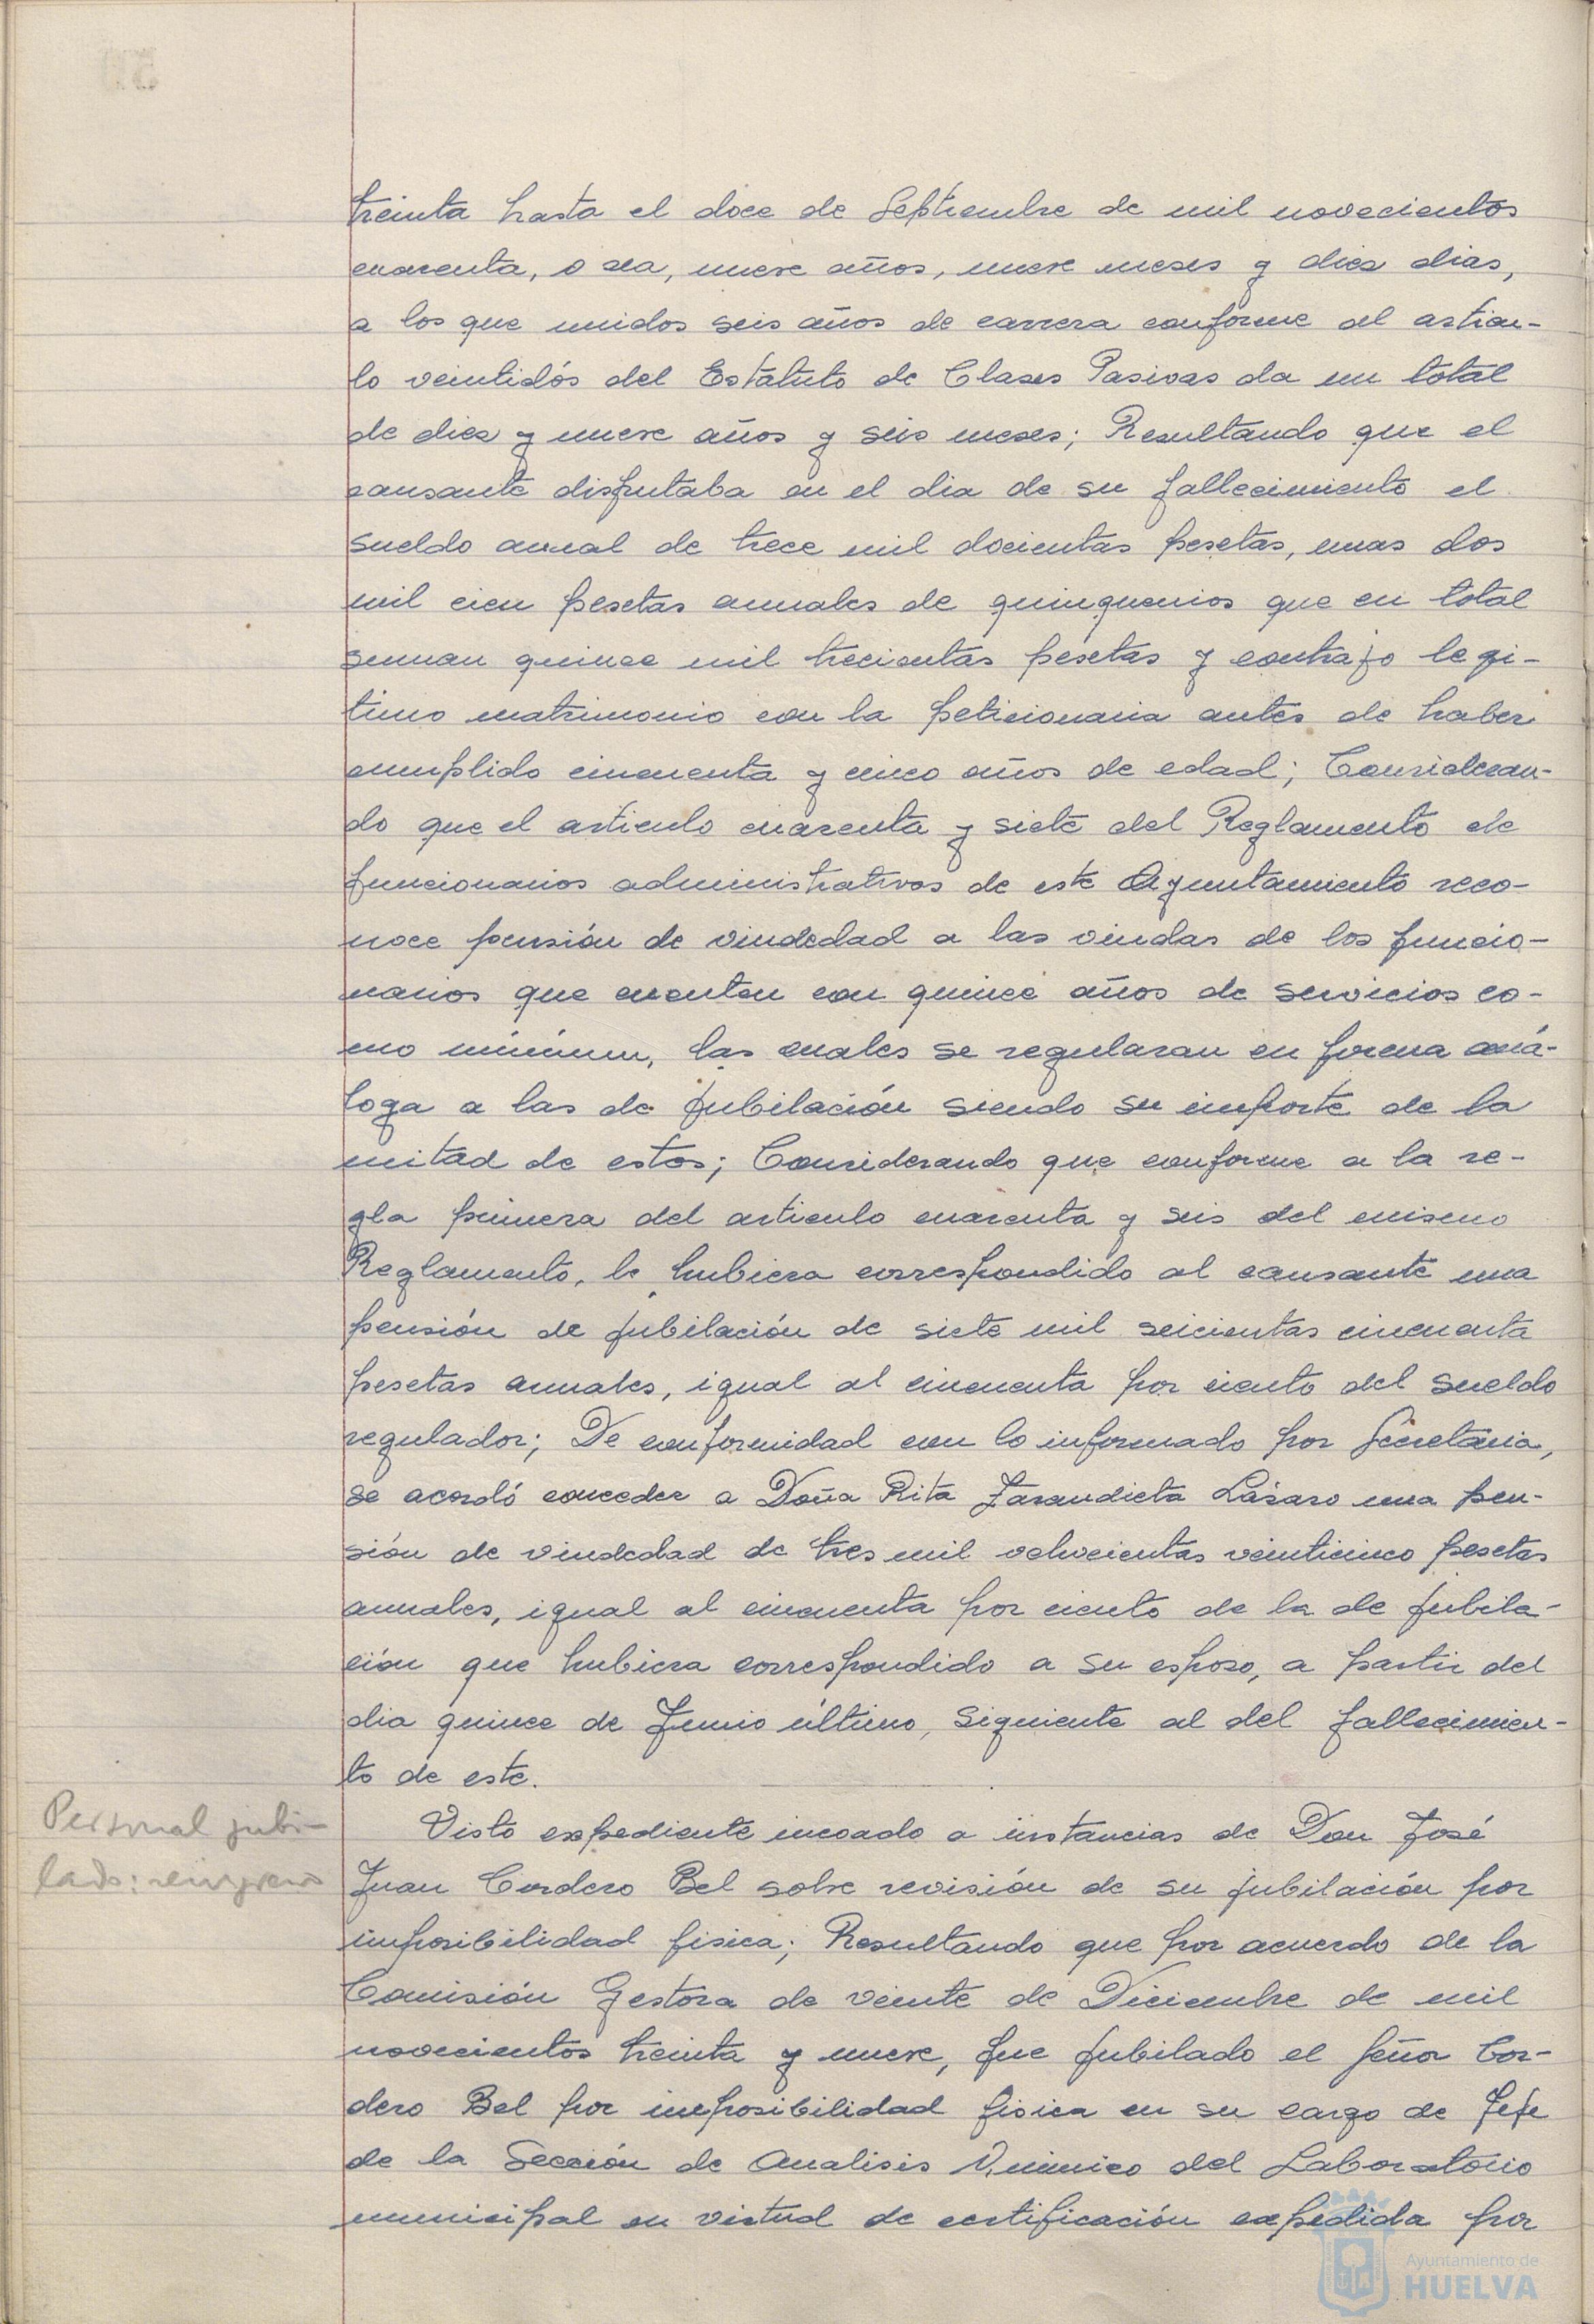 treinta hasta el doce de Septiembre de mil novecientos
cuarenta, o sea, nueve años, nueve meses y diez dias,
a los que unidos seis años de carrera conforme al articu-
lo veintidós del Estatuto de Clases Pasivas da un total
de diez y nueve años y seis meses; Resultando que el
causante disfrutaba en el dia de su fallecimiento el
sueldo anual de trece mil docientas pesetas, unas dos
mil cien pesetas anuales de quinquenios que en total
suman quince mil trecientas pesetas y contrajo legi-
timo matrimonio con la peticionaria antes de haber
cumplido cincuenta y cinco años de edad; Consideran-
do que el articulo cuarenta y siete del Reglamento de
funcionarios administrativos de este Ayuntamiento reco-
noce pensión de viudedad a las viudas de los funcio-
narios que cuenten con quince años de servicios co-
mo mínimun, las cuales se regularan en forma aná-
loga a las de jubilación siendo su importe de la
mitad de estos; Considerando que conforme a la re-
gla primera del articulo cuarenta y seis del mismo
Reglamento, le hubiera correspondido al causante una
pensión de jubilación de siete mil seicientas cincuenta
pesetas anuales, igual al cincuenta por ciento del sueldo
regulador; De conformidad con lo informado por Secretaria,
se acordó conceder a Doña Rita Zarandieta Lázaro una pen-
sión de viudedad de tres mil ochocientas veinticinco pesetas
anuales, igual al cincuenta por ciento de la de jubila-
ción que hubiera correspondido a su esposo, a partir del
dia quince de Junio último, siguiente al del fallecimien-
to de este.
Personal jubi-
lado: reingreso
Visto expediente incoado a instancias de Don José
Juan Cordero Bel sobre revisión de su jubilación por
imposibilidad fisica; Resultando que por acuerdo de la
Comisión Gestora de veinte de Diciembre de mil
novecientos treinta y nueve, fue jubilado el señor Cor-
dero Bel por imposibilidad fisica en su cargo de Jefe
de la Sección de Analisis Quimico del Laboratorio
municipal en virtud de certificación expedida por
Ayuntamiento de
HUELVA